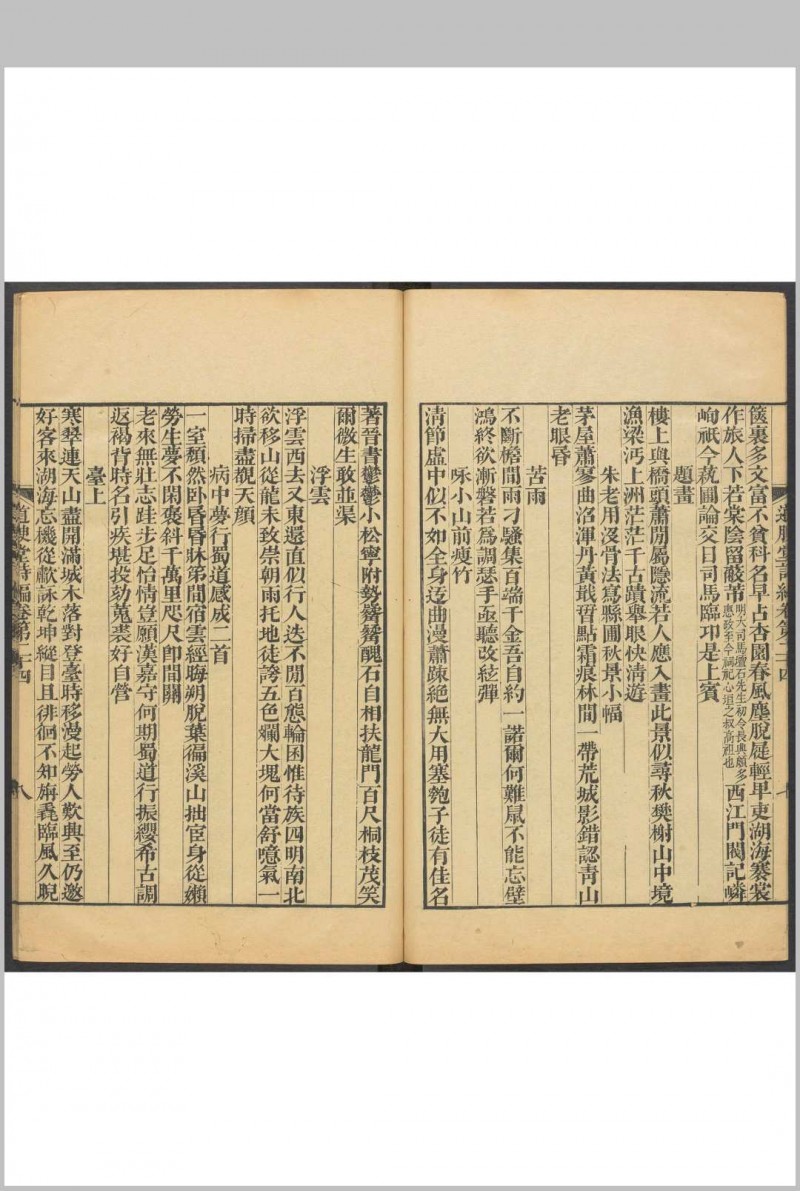 篋裏多文富不貧科名早占杏園春風塵脫屣輕卑吏湖海褰裳
作旅人下若棠陰留蔽芾明大司馬 石先生初令長興頗多惠政至今祠祀心 之叔高祖也西江門閥記嶙
峋祇今蓺圃論交日司馬臨卭是上賓
題畫
樓上與橋頭蕭閒屬隱流若人應入畫此景似尋秋樊榭山中境
漁梁沔上洲茫茫千古蹟舉眼快淸遊
朱老用沒骨法寫縣圃秋景小幅
茅屋蕭寥曲洺渾丹黃戢晢點霜痕林間一帶荒城影錯認靑山
老眼昏
苦雨
不斷檐間雨刁騷集百端千金吾自約一諾爾何難鼠不能忘壁
鴻終欲漸磐若爲調瑟手亟聽改絃彈
咏小山前瘦竹
淸節虛中似不如全身迂曲漫蕭疎絕無大用塞匏子徒有佳名
著晉書鬱鬱小松寧附勢 醜石自相扶龍門百尺桐枝茂笑
爾微生敢並渠
浮雲
浮雲西去又東還直似行人迭不閒百態輪囷惟待族四明南北
欲移山從龍未致崇朝雨托地徒誇五色斕大塊何當舒噫氣一
時掃盡覩天顏
病中夢行蜀道感成二首
一室頹然卧昏昏牀笫間宿雲經晦朔脫葉徧溪山拙宦身從嬾
勞生夢不閑褒斜千萬里咫尺卽間關
老來無壯志跬步足怡情豈願漢嘉守何期蜀道行振纓希古調
返褐背時名引疾堪投劾菟裘好自營
臺上
寒翠連天山盡開滿城木落對登臺時移漫起勞人歎興至仍邀
好客來湖海忘機從歗詠乾坤縱目且徘徊不知旃毳臨風久睨
道腴堂詩編卷第二十四
八
道腴堂詩編卷第二十四